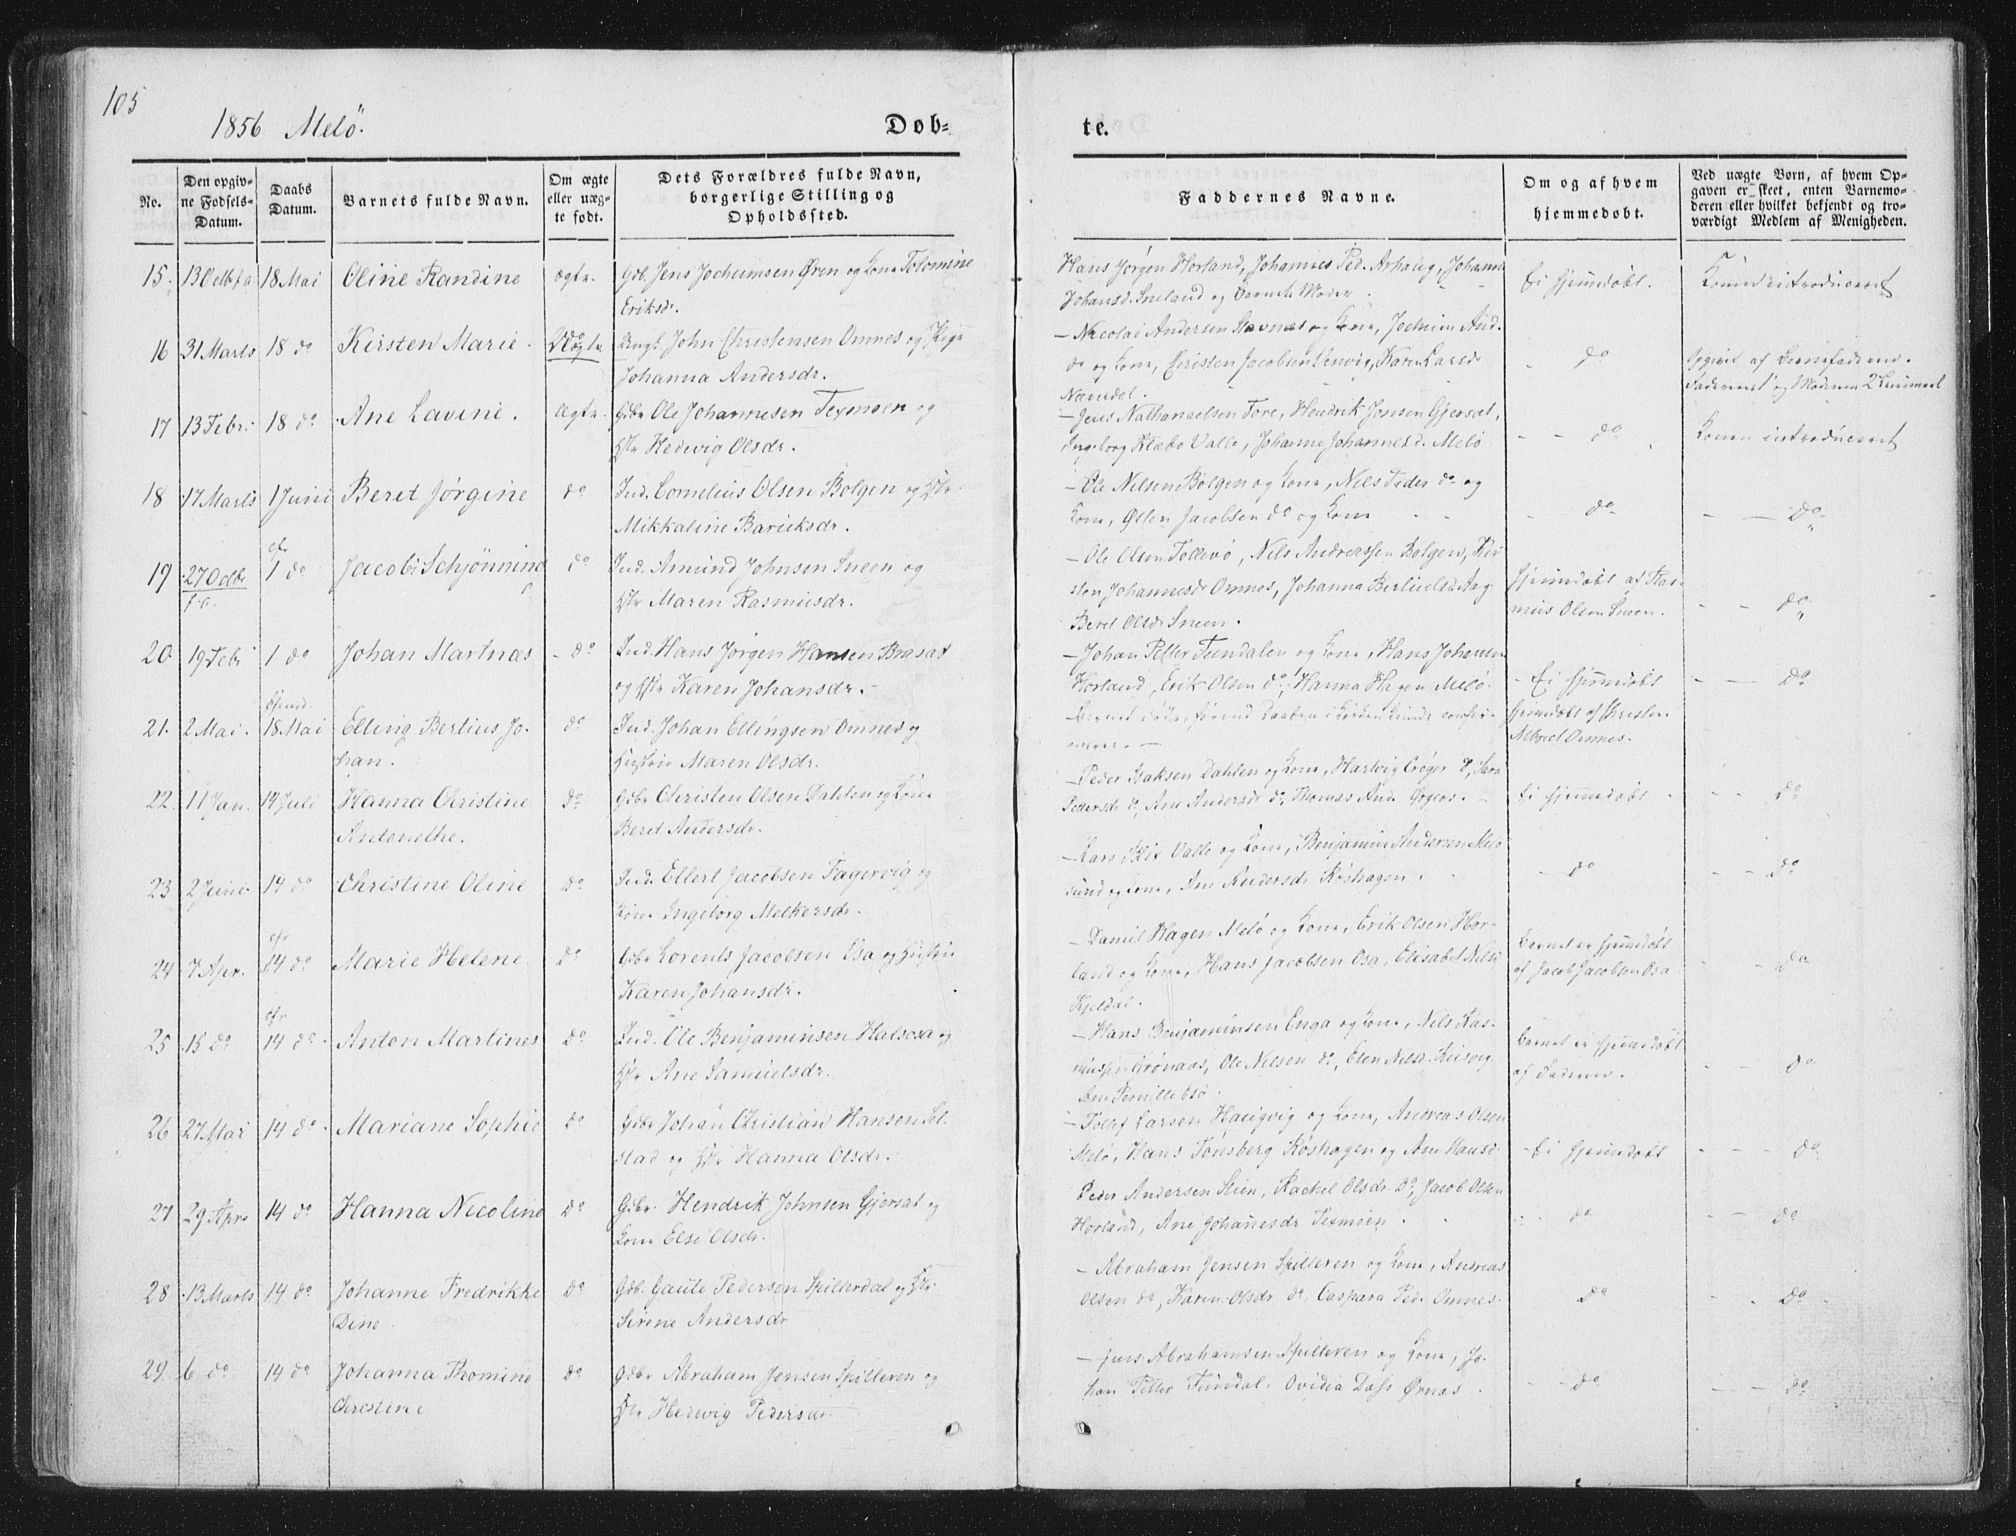 105
1856 Melö.
Døb=
te.
No.
Den opgiv-
ne Fødsels-
Datum.
Daabs
Datum.
Barnets fulde Navn.
Om ægte
eller uæg-
te født.
Dets Forældres fulde Navn,
borgerlige Stilling og
Opholdssted.
Faddernes Navne.
Om og af hvem
hjemmedøbt.
Ved uægte Børn, af hvem Op-
gaven er skeet, enten Barnemo-
deren eller hvilket bekjendt og tro-
værdigt Medlem af Menigheden.
15. 13 Octb f.a. 18 Mai Oline Randine ægte. Gdb Jens Jochumsen Øren og Kone Tolomine
Eriksdr.
Hans Jørgen Horland, Johannes Ped. Arhaug, Johanna
Johansd. Sneland og Barnets Moder.
Ei hjemdøbt.
Konen introduceret
16 31 Marts 18 do Kirsten Marie. Uægte Ungk. John Christensen Omnes og Pige
Johanna Andersdr.
- Nicolai Andersen Stavnes og Kone, Jochum And.
do og Kone, Christen Jacobsen Envig, Karen Larsd
do
Opgivet af Barnefaderen.
Faderens 1 og Moderens 2
17 13 Febr. 18 do Ane Lavine. Ægte. Gdbr Ole Johannesen Texmoen og
Hstr Hedevig Olsdr.
- Jens Nathanaelsen Tore, Hendrik Jonsen Gjerset,
Ingeborg Klæbo Valle, Johanna Johannesd. Melö
- - do
Konen introduceret
18 17 Marts 1 Juni Beret Jørgine do Ind. Cornelius Olsen Bolgen og Hstr.
Mikkaline Baruksdr.
- Ole Nilsen Bolgen og Kone, Nils Peder do og
Kone, Østen Jacobsen do og Kone
- do
- - do
19 27 Octbr
f.a. 1 do Jacob Schjønning do Ind. Amund Johnsen Sneen og
Hstr Maren Rasmusdr.
- Ole Olsen Tollevø, Nils Anderssen Bolgen, Kir-
sten Johannesdr Omnes, Johanna Bertheelsd. Aag
Beret Olsdr Sneen.
Hjemdøbt af Ras-
mus Olsen Sneen.
- - do
20 19 Febr 1 do Johan Martinas - do Ind. Hans Jørgen Hansen Brasæt
og Hstr Karen Johansdr.
- Johan Petter Fundalen og Kone, Hans Johansen
Horland, Erik Olsen do, Hanna Hagen Melö.
- Ei hjemdøbt
- - do
21. 2 Mai. 18 Mai Elling Bertius Jo-
han. do Ind. Johan Ellingsen Omnes og
Hustru Maren Olsdr.
Barnet døde, førend Daaben i Kirken kunde confir-
meres. -
Hjemdøbt af Christen
Omnes.
22. 11 Jan. 14 Juli Hanna Christine
Antonethe. do Gdbr Christen Olsen Dahlen og Kone
Beret Andersdr.
- Peder Isaksen Dahlen og Kone, Hartvig Crøger do, Sara
Pettersdr do, Ane Andersdr do, Thomas And. Ørgeos. -
Ei hjemmedøbt
- do
23 2 Juni 14 do Christine Oline do Ind. Ellert Jacobsen Fagervig og
Kone Ingeborg Melkersdr.
- Lars Blix Valle og Kone, Benjamin Andersen Melö
sund og Kone, Ane Andersdr Røshagen.
- do
- - do
24 7 Apr. 14 do Marie Helene do Gdbr Lorents Jacobsen Osa og Hustru
Karen Johansdr.
- Daniel Hagen Melö og Kone, Erik Olsen Hor-
land og Kone, Hans Jacobsen Osa, Elisabet Nilsd
Kjeldal.
Barnet er hjemdøbt
af Jacob Jacobsen Osa
- - do
25 15 do 14 do Anton Martines do Ind. Ole Benjaminsen Halsosa og
Hstr Ane Samuelsdr.
- Hans Benjaminsen Enga og Kone, Nils Ras-
mussen Grønaas, Ole Nilsen do, Elen Nilsd.
Ane Pernille Esø.
Barnet er hjemdøbt
af Faderen.
- - do
26 27 Mai 14 do Mariane Sophie do Gdbr Johan Christian Hansen Sel-
stad og Hstr Hanna Olsdr.
- Tollef Larsen Haugvig og Kone, Andreas Olsen
Melö, Hans Tønsberg Røshagen og Ane Hansd
- Ei hjemdøbt
- - do
27 29 Apr. 14 do Hanna Nicoline do Gdbr. Hendrik Johnsen Gjersæt og
Kone Else Olsdr.
Peder Andersen Steen, Rachel Olsdr do, Jacob Olsen
Horland, Ane Johanesdr Texmoen.
- do
- - do
28 13 Marts 14 do Johanne Fredrikke
Dine do Gdb. Gaute Pedersen Spillerdal og Hstr.
Sirene Andersdr
- Abraham Jensen Spilleren og Kone, Andreas
Olsen do, Karen Olsdr do. Caspara Ped. Omnes
do
- do
29. 6 do 14 do Johanna Thomine
Christine do Gdbr Abraham Jensen Spilleren og
Hstr Hedevig Pedersdr
- Jens Abrahamsen Spilleren og Kone, Jo-
han Petter Fundal. Ovidia Dass Ørnæs.
- - do
- - do